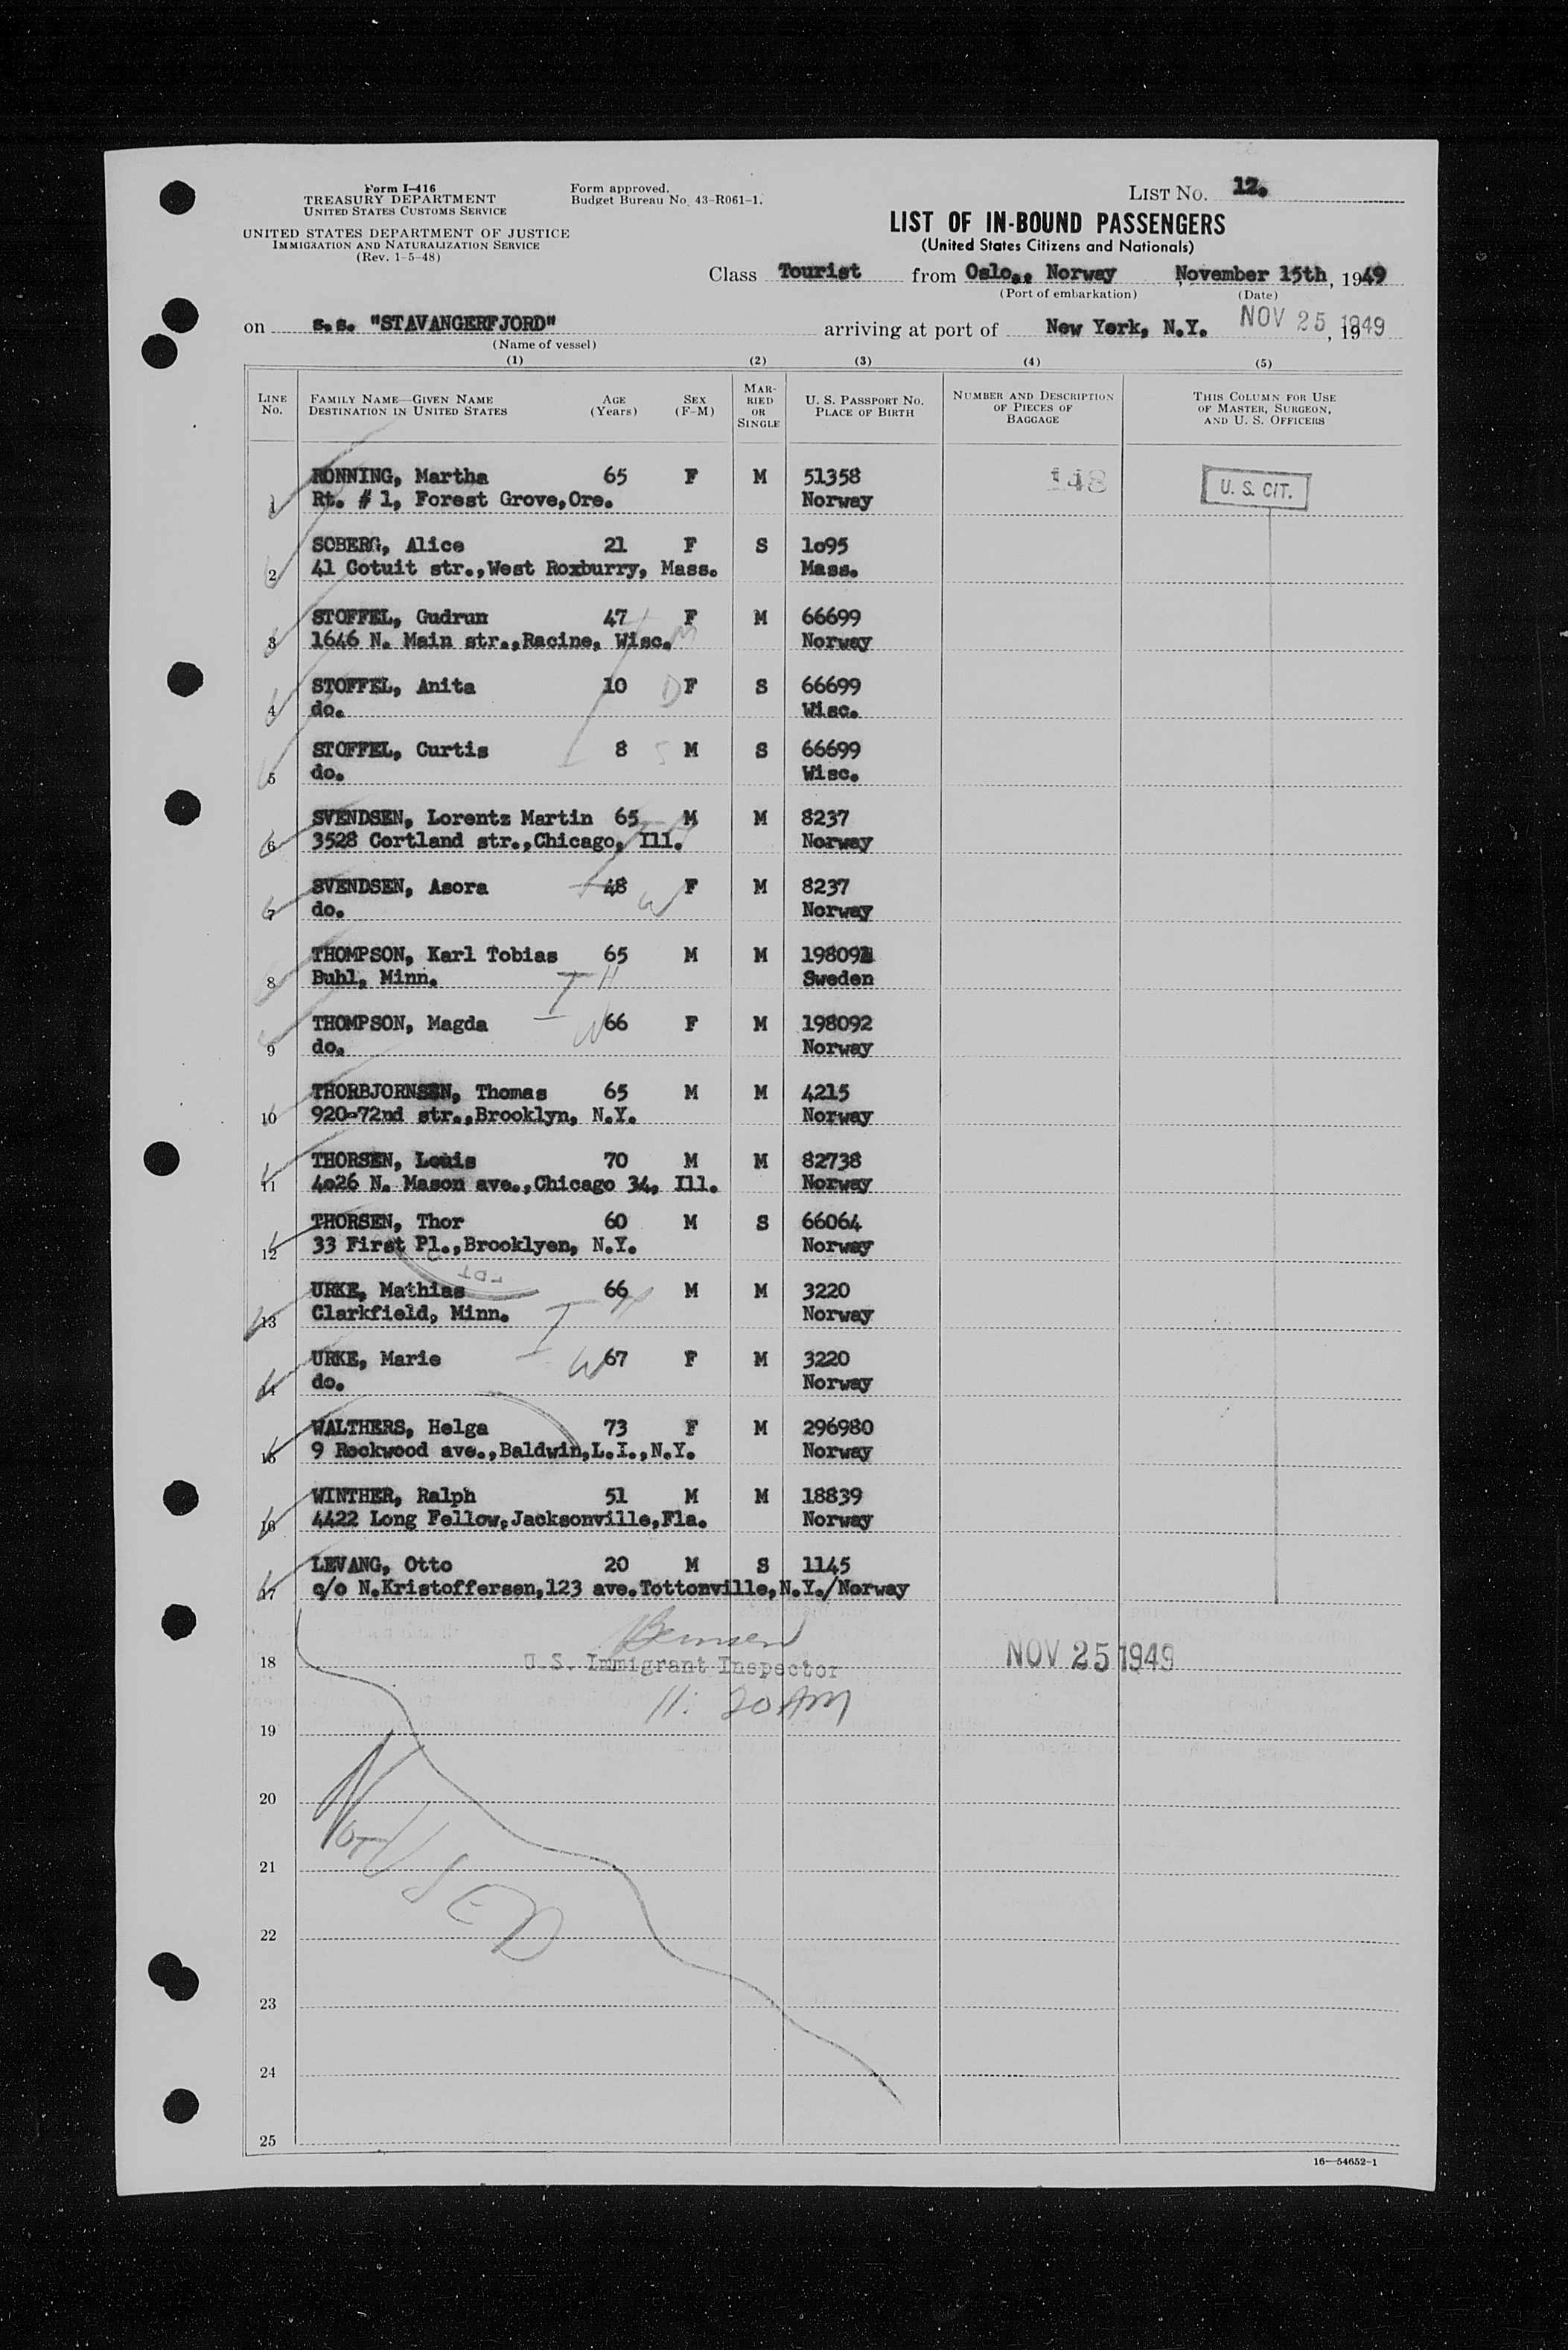 Form I-416
TREASURY DEPARTMENT
UNITED STATES CUSTOMS SERVICE
UNITED STATES DEPARTMENT OF JUSTICE
IMMIGRATION AND NATURALIZATION SERVICE
(Rev. 1-5-48)
Form approved.
Budget Bureau No. 43-R061-1.
LIST NO. 12.
LIST OF IN-BOUND PASSENGERS
(United States Citizens and Nationals)
Class Tourist from Oslo., Norway November 15th, 1949
(Port of embarkation) (Date)
on s.s. "STAVANGERFJORD" arriving at port of New York, N.Y. NOV 25 1949, 19
(Name of vessel)
(1) (2) (3) (4) (5)
LINE No. FAMILY NAME—GIVEN NAME DESTINATION IN UNITED STATES AGE (Years) SEX (F-M) MARRIED OR SINGLE U. S. PASSPORT NO. PLACE OF BIRTH NUMBER AND DESCRIPTION OF PIECES OF BAGGAGE THIS COLUMN FOR USE OF MASTER, SURGEON, AND U. S. OFFICERS
RONNING, Martha 65 F M 51358 148 U. S. CIT.
1 Rt. # 1, Forest Grove,Ore. Norway
SOBERG, Alice 21 F S 1o95
2 41 Cotuit str.,West Roxburry, Mass. Mass.
STOFFEL, Gudrun 47 F M 66699
3 1646 N. Main str.,Racine, Wisc. M Norway
STOFFEL, Anita 10 D F S 66699
4 do. Wisc.
STOFFEL, Curtis 8 S M S 66699
5 do. Wisc.
SVENDSEN, Lorentz Martin 65 M M 8237
6 3528 Cortland str.,Chicago, Ill. H Norway
SVENDSEN, Asora 48 W F M 8237
7 do. Norway
THOMPSON, Karl Tobias 65 M M 198092
8 Buhl, Minn. H Sweden
THOMPSON, Magda W 66 F M 198092
9 do. Norway
THORBJORNSEN, Thomas 65 M M 4215
10 920-72nd str.,Brooklyn, N.Y. Norway
THORSEN, Louis 70 M M 82738
11 4o26 N. Mason ave.,Chicago 34, Ill. Norway
THORSEN, Thor 60 M S 66064
12 33 First Pl.,Brooklyen, N.Y. Norway
URKE, Mathias 66 H M M 3220
13 Clarkfield, Minn. Norway
URKE, Marie W 67 F M 3220
14 do. Norway
WALTHERS, Helga 73 F M 296980
15 9 Rockwood ave.,Baldwin,L.I.,N.Y. Norway
WINTHER, Ralph 51 M M 18839
16 4422 Long Fellow,Jacksonville,Fla. Norway
LEVANG, Otto 20 M S 1145
17 c/o N.Kristoffersen,123 ave.Tottonville,N.Y./Norway
18 U.S. Immigrant Inspector NOV 25 1949
11:20 AM
19
20
NOT USED
21
22
23
24
25
16—54652-1